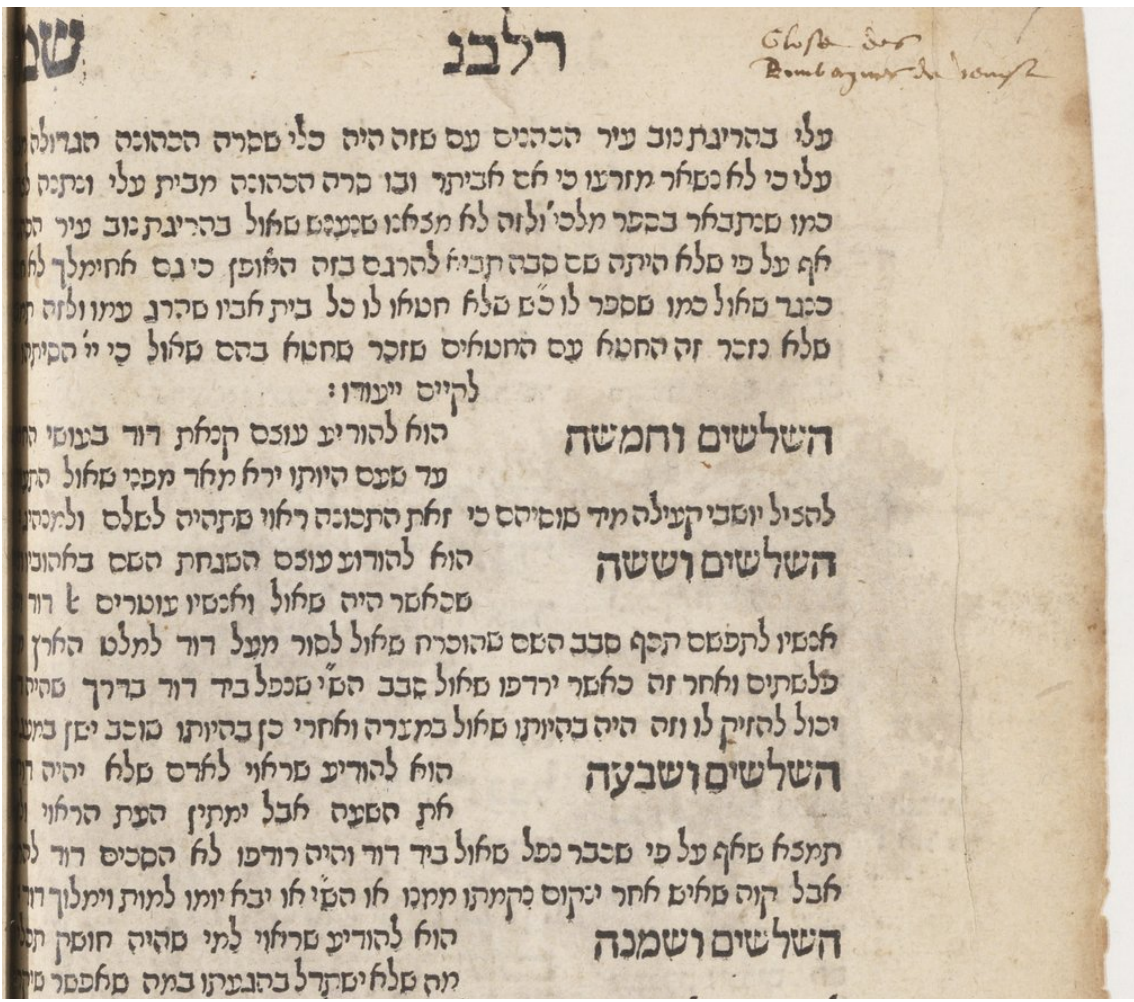 רלבנ
עלי בהריגת נוב עיר הכהנים עם שזה היה כלי שסרה הכהונה הגדולה
עלי כי לא נשאר מזרעו כי אם אביתר ובו סרה הכהונה מבית עלי ונתנה
כמו שנתבאר בספר מלכי' ולזה לא מצאנו שנענש שאול בהריגת נוב עיר
אף על פי שלא היתה שם סבה תביא להרגם בזה האופן כי גם אחימלך
כנגד שאול כמו שספר לו כ"ש שלא חטאו לו כל בית אביו שהרג עמו ולזה
שלא נזכר זה החטא עם החטאים שזכר שחטא בהם שאול כי יי'
לקיים ייעודו :
השלשים וחמשה
הוא להודיע עוצם קנאת דוד בעושי
עד שעם היותו ירא מאד מפני שאול
להציל יושבי קעילה מיד שוסיהם כי זאת התכונה ראוי שתהיה לשלם
השלשים וששה
הוא להודיע עוצם השגחת השם
שכאשר היה שאול ואנשיו עוטרים
אנשיו לתפשם תכף סבב השם שהוכרח שאול לסור מעל דוד למלט הארץ
פלשתים ואחר זה כאשר ירדפו שאול סבב הש"י שנפל ביד דוד בדרך
יכול להזיק לו וזה היה בהיותו שאול במערה ואחרי כן בהיותו שוכב ישן
השלשים ושבעה
הוא להודיע שראוי לאדם שלא יהיה
את השעה אבל ימתין העת הראוי
תמצא שאף על פי שכבר נפל שאול ביד דוד והיה רודפו לא הסכים דוד
אבל קוה שאיש אחר ינקום נקמתו ממנו או הש"י או יבא יומו למות וימלוך
השלשים ושמנה
הוא להודיע שראוי למי שהיה חושק
מה שלא ישתדל בהגעתו במה שאפשר
Glose des